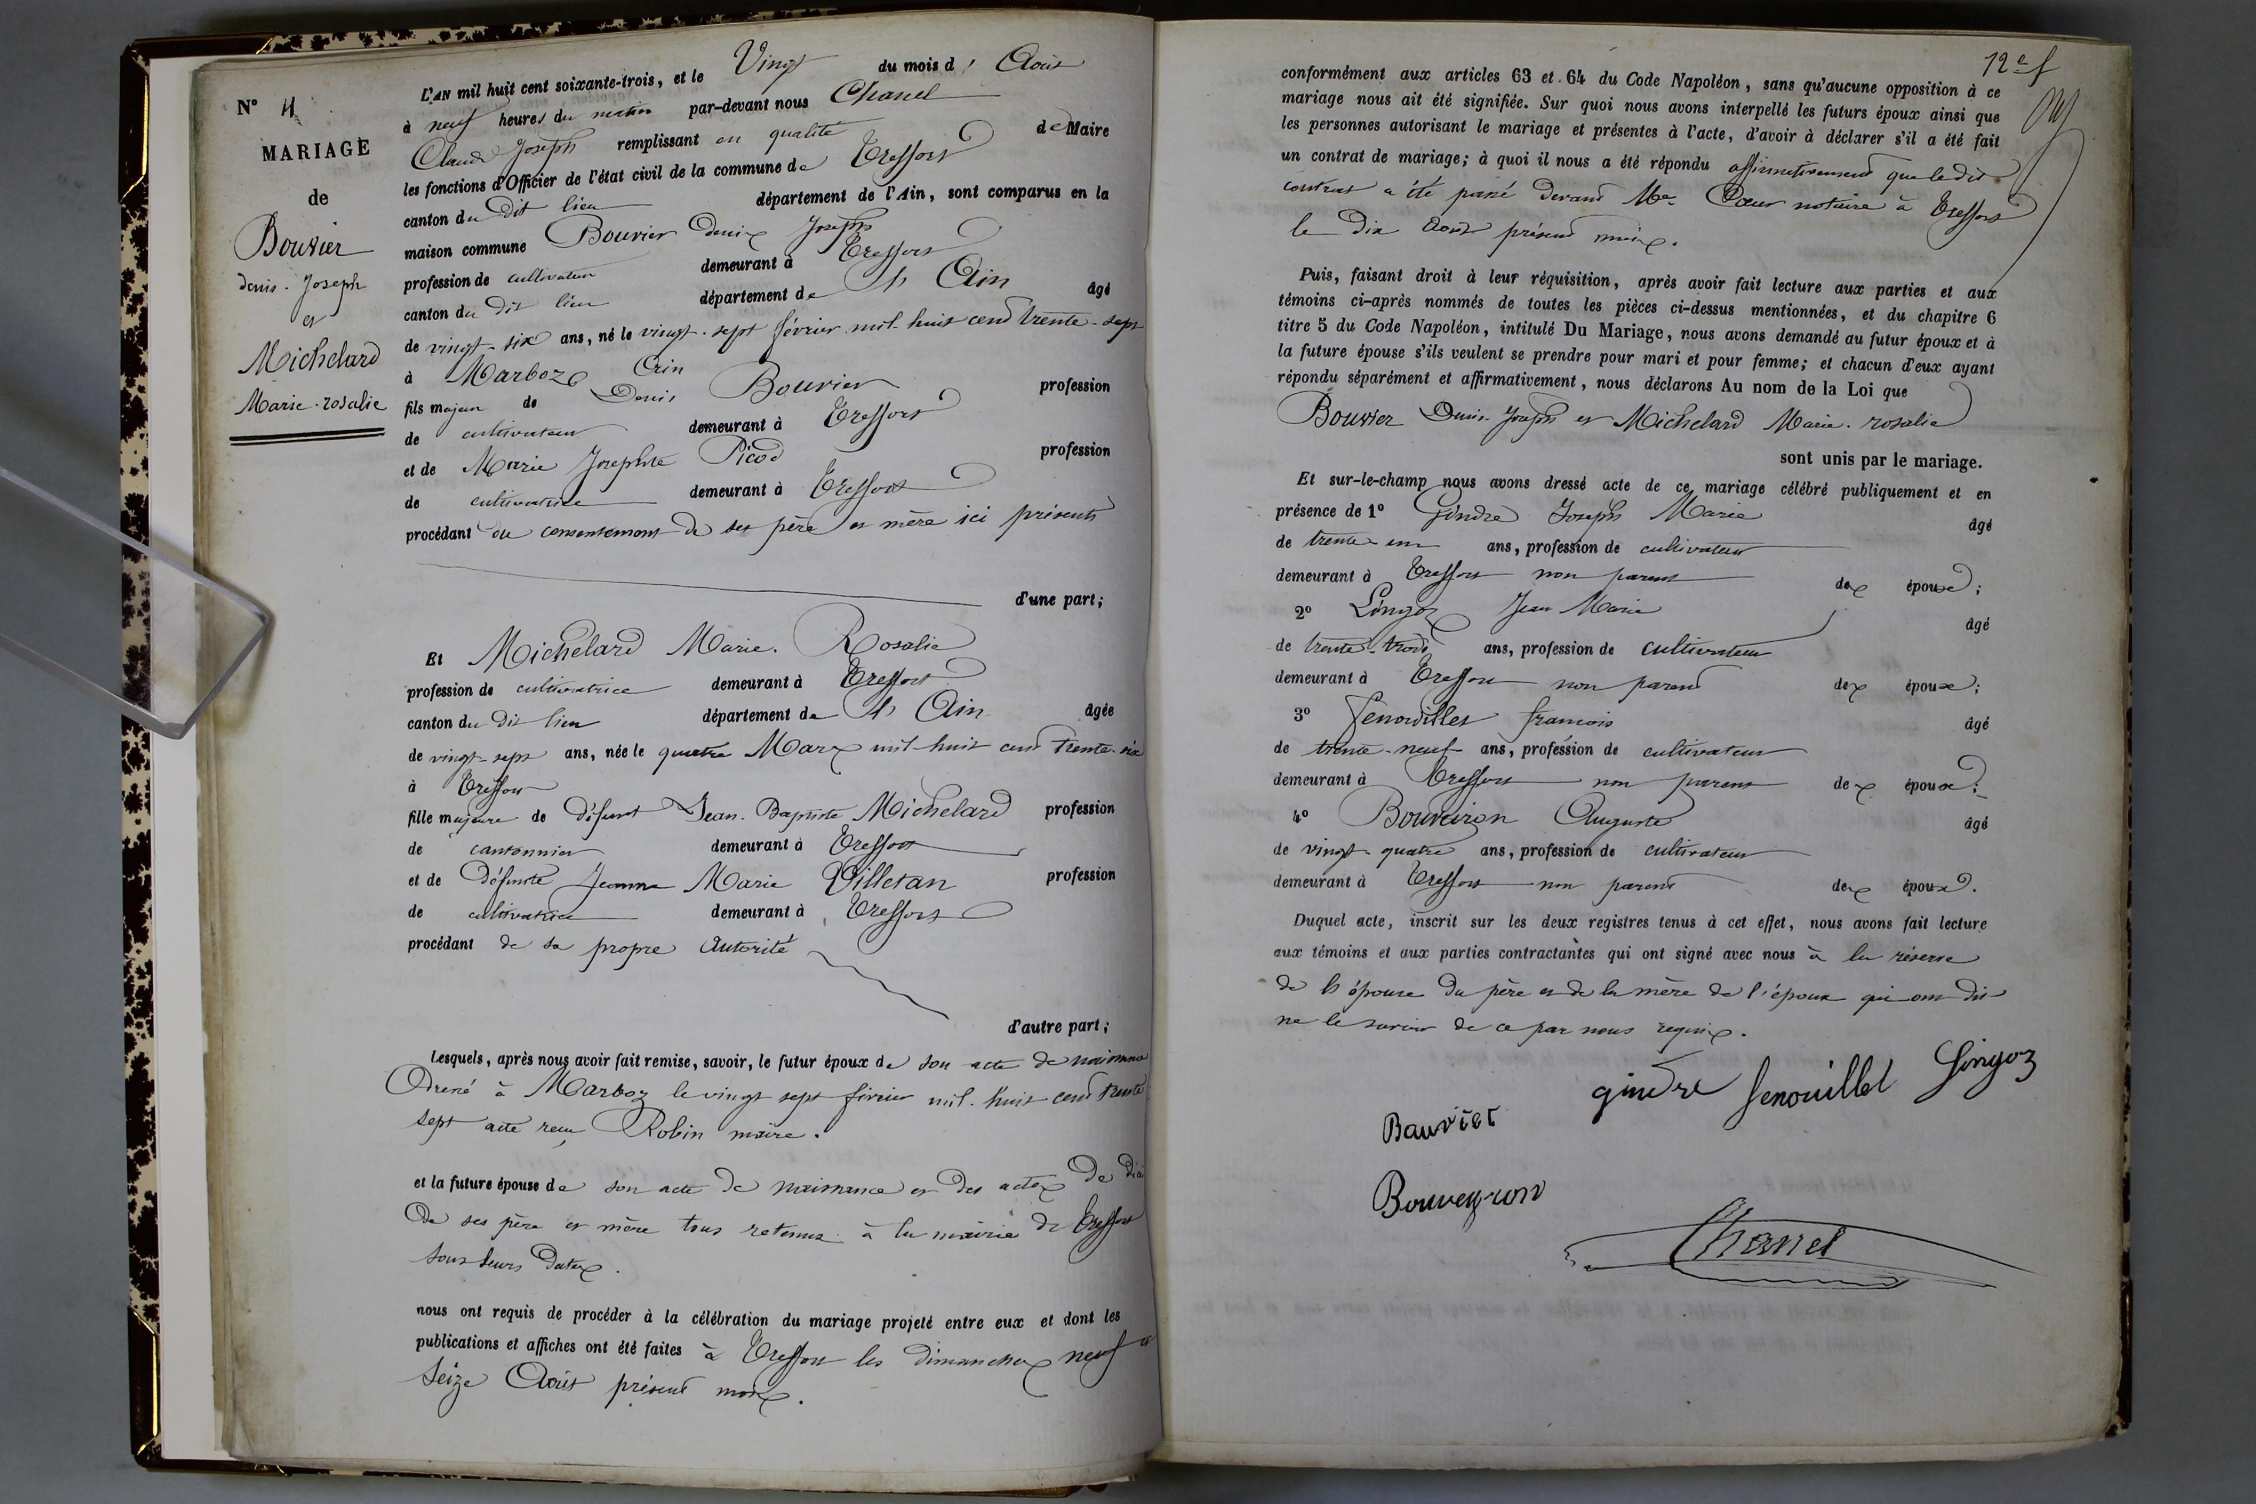 N° 11
MARIAGE
de
Bouvier
denis. Joseph
et
Michelard
Marie-rosalie
L'AN mil huit cent soixante-trois, et le Vingt du mois d' Août
à neuf heures du matin par-devant nous Chanel
Claude Joseph remplissant en qualité de Maire
les fonctions d'Officier de l'état civil de la commune de Treffort
canton du dit lieu département de l'Ain, sont comparus en la
maison commune Bouvier Denis Joseph
profession de cultivateur demeurant à Treffort
canton du dit lieu département de l' Ain âgé
de vingt-six ans, né le vingt-sept février mil-huit cent trente-sept
à Marboz Ain
fils majeur de Denis Bouvier profession
de cultivateur demeurant à Treffort
et de Marie Josephte Picod profession
de cultivatrice demeurant à Treffort
procédant du consentement de ses père et mère ici présents
d'une part;
Et Michelard Marie. Rosalie
profession de cultivatrice demeurant à Treffort
canton du dit lieu département de l' Ain âgée
de vingt-sept ans, née le quatre Mars mil-huit cent trente-six
à Treffort
fille majeure de défunt Jean-Baptiste Michelard profession
de cantonnier demeurant à Treffort
et de défunte Jeanne Marie Villetan profession
de cultivatrice demeurant à Treffort
procédant de sa propre Autorité
d'autre part;
Lesquels, après nous avoir fait remise, savoir, le futur époux de son acte de naissance
à Marboz le vingt sept février mil-huit cent trente
sept acte reçu Robin maire.
et la future épouse de son acte de naissance et des actes de
de ses père et mère tous retenus à la mairie de Treffort
sous leurs dates.
nous ont requis de procéder à la célébration du mariage projeté entre eux et dont les
publications et affiches ont été faites à Treffort les dimanches neuf et
seize Août présent mois.
12e f
conformément aux articles 63 et 64 du Code Napoléon, sans qu'aucune opposition à ce
mariage nous ait été signifiée. Sur quoi nous avons interpellé les futurs époux ainsi que
les personnes autorisant le mariage et présentes à l'acte, d'avoir à déclarer s'il a été fait
un contrat de mariage; à quoi il nous a été répondu affirmativement que le dit
contrat a été passé devant Me. Coeur notaire à Treffort
le Dix Août présent mois.
Puis, faisant droit à leur réquisition, après avoir fait lecture aux parties et aux
témoins ci-après nommés de toutes les pièces ci-dessus mentionnées, et du chapitre 6
titre 5 du Code Napoléon, intitulé Du Mariage, nous avons demandé au futur époux et à
la future épouse s'ils veulent se prendre pour mari et pour femme; et chacun d'eux ayant
répondu séparément et affirmativement, nous déclarons Au nom de la Loi que
Bouvier Denis-Joseph et Michelard Marie-rosalie
sont unis par le mariage.
Et sur-le-champ nous avons dressé acte de ce mariage célébré publiquement et en
présence de 1° Gindre Joseph Marie âgé
de trente-un ans, profession de cultivateur
demeurant à Treffort non parent des époux;
2° Lingoz Jean Marie âgé
de trente-trois ans, profession de cultivateur
demeurant à Treffort non parent des époux;
3° Fenouillet francois âgé
de trente-neuf ans, profession de cultivateur
demeurant à Treffort non parent des époux;
4° Bouveiron Auguste âgé
de vingt-quatre ans, profession de cultivateur
demeurant à Treffort non parent des époux.
Duquel acte, inscrit sur les deux registres tenus à cet effet, nous avons fait lecture
aux témoins et aux parties contractantes qui ont signé avec nous à la réserve
de l'épouse du père et de la mère de l'époux qui ont dit
ne le savoir de ce par nous requis.
gindre fenouillet Lingoz
Bauvier
Bouveyron
Chanel